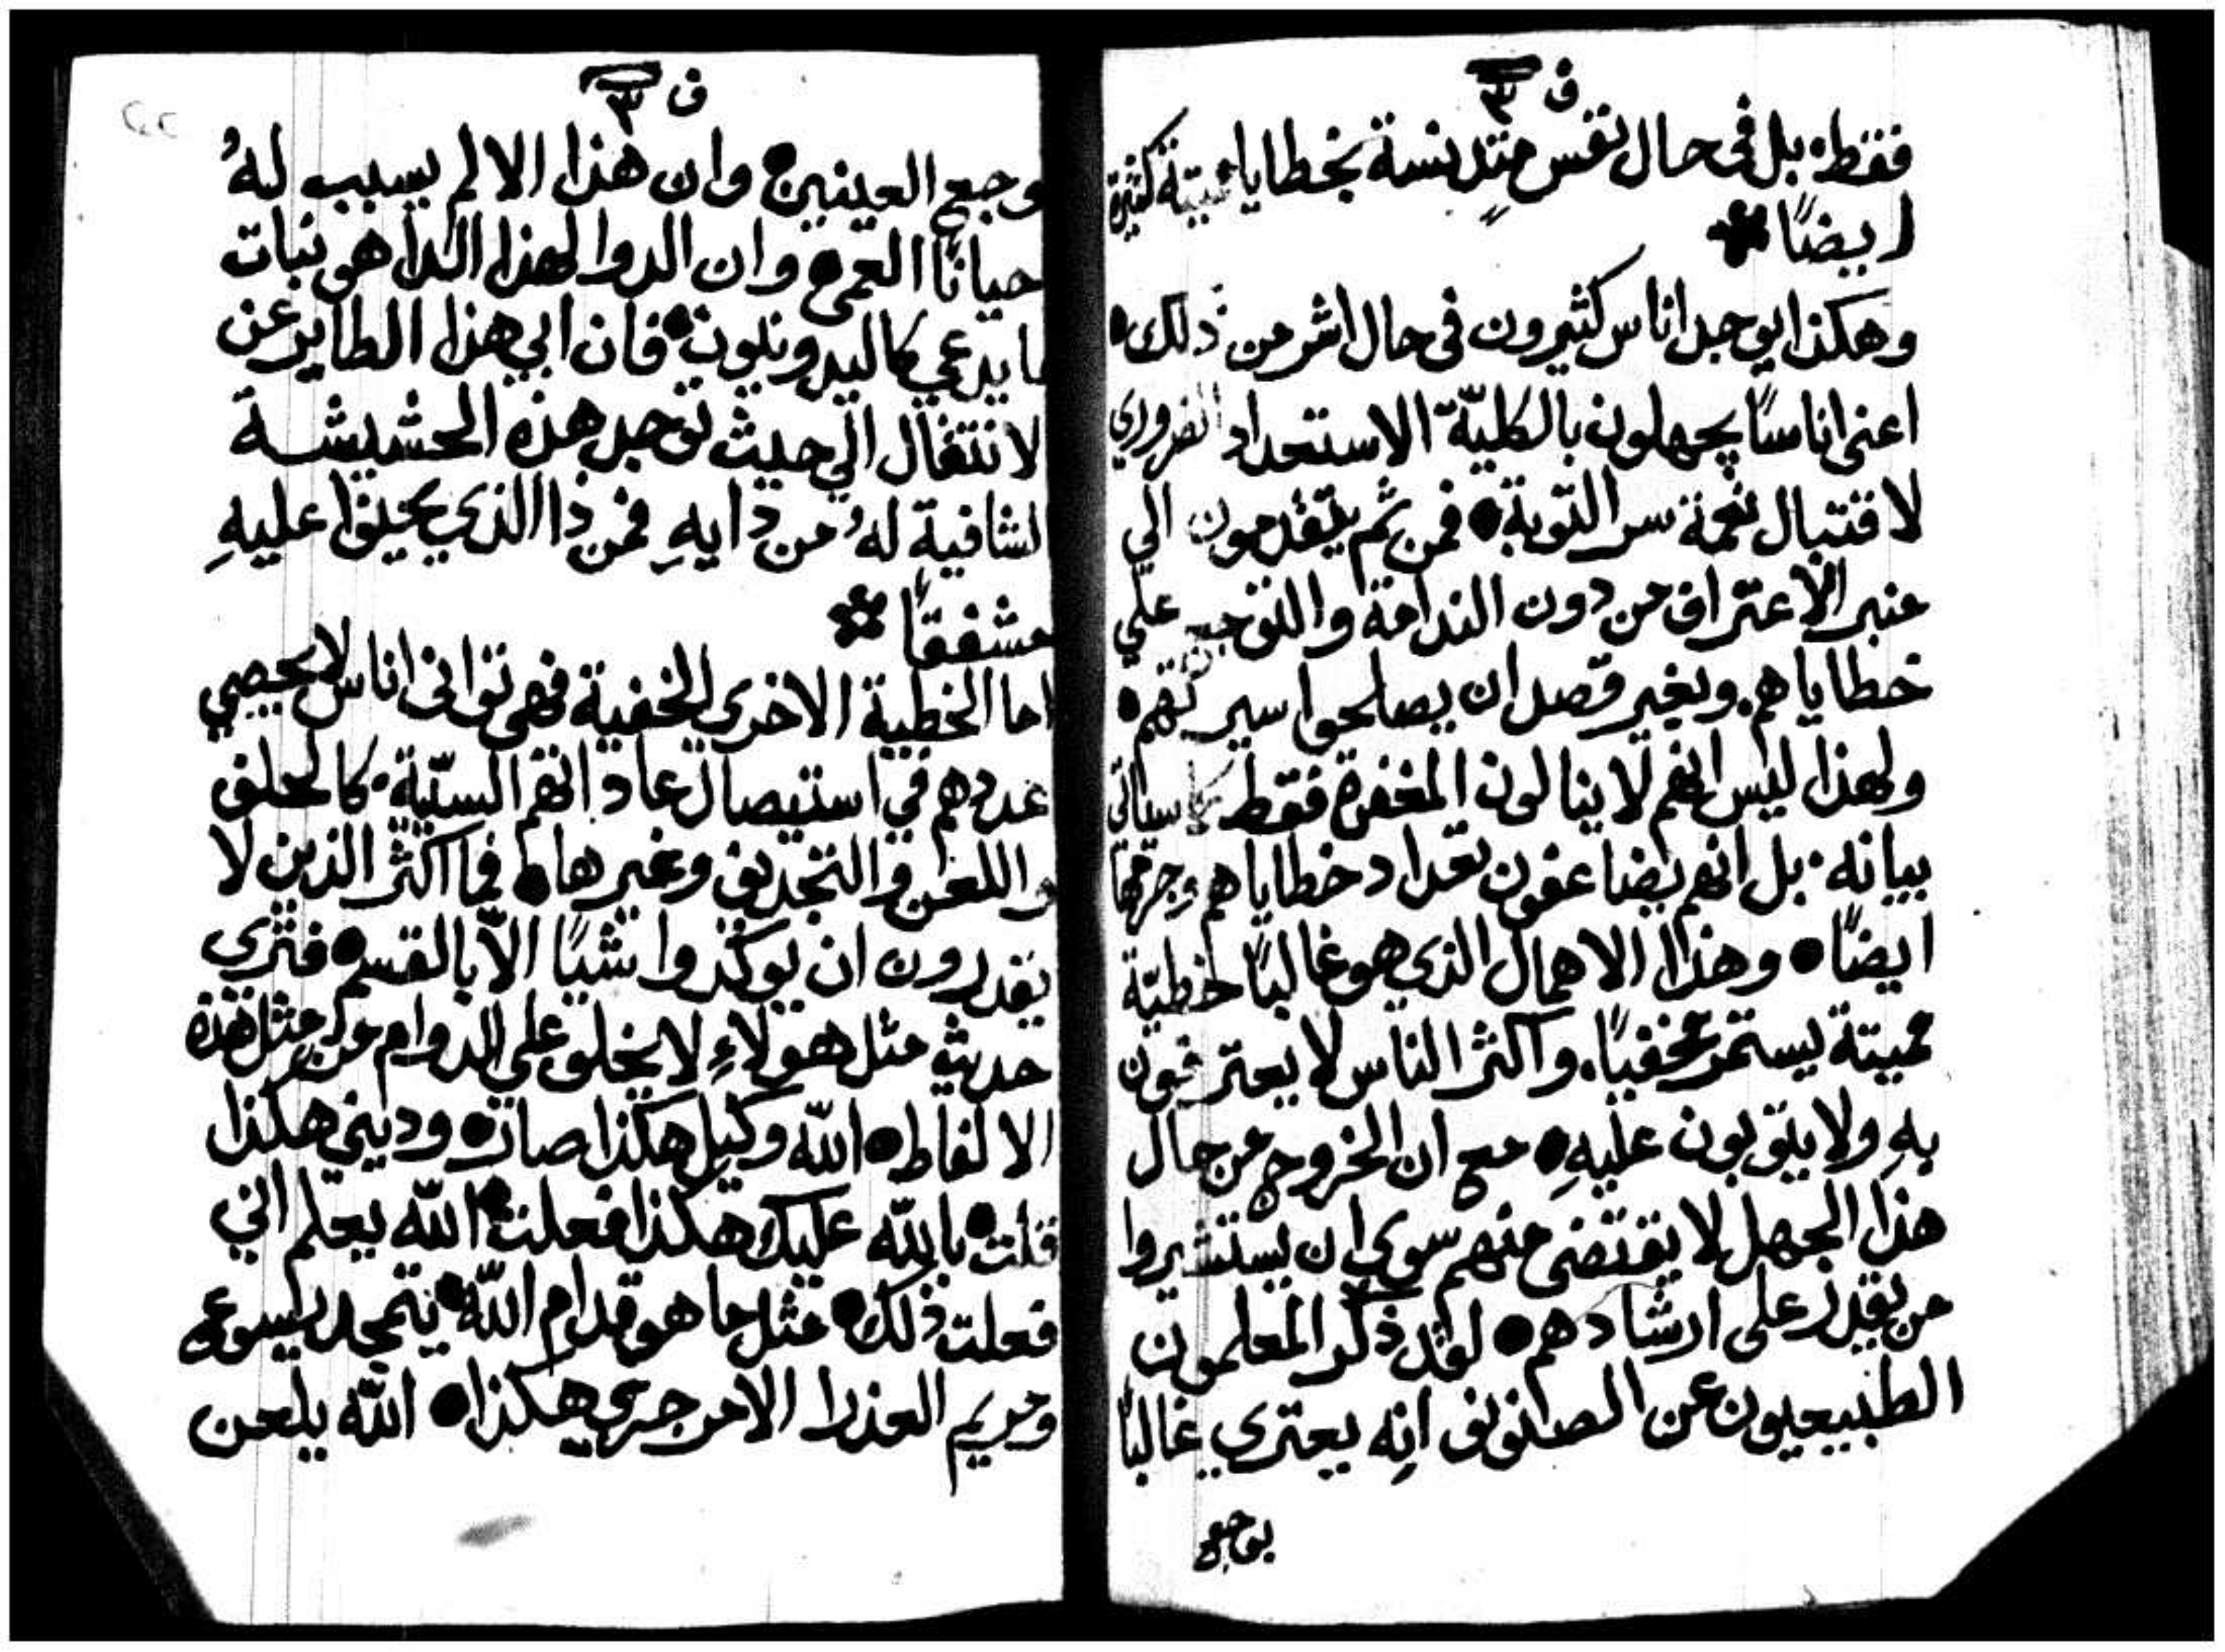 ف ٣
فقط، بل فى حال نفس متدنسة بخطايا مميتة كثيرة
ايضًا
وهكذا يوجد اناس كثيرون فى حال اشر من ذلك
اعنى اناسًا يجهلون بالكليّة الاستعداد الضروري
لاقتبال نعمة سر التوبة فمن ثم يتقدمون الي
منبر الاعتراف من دون الندامة والتوجع علي
خطاياهم. وبغير قصد ان يصلحوا سيرتهم
ولهذا ليس انهم لا ينالون المغفرة فقط كما سياتى
بيانه. بل انهم يضاعفون تعداد خطاياهم وجرمها
ايضًا وهذا الاهمال الذي هو غالبًا خطيّة
مميتة يستمر مخفيًا. واكثر الناس لا يعترفون
بهِ ولا يتوبون عليهِ مع ان الخروج من حال
هذا الجهل لا يقتضى منهم سوي ان يستشيروا
من يقدر على ارشادهم لقد ذكر المعلمون
الطبيعيون عن السنونو انه يعتري غالبًا
بوجع
ف ٣
وجع العينين وان هذا الالم يسبب لهُ
احيانًا العمى وان الدوا لهذا الدا هى نبات
ما يدعي كاليدونيون فان ابي هذا الطاير عن
الانتقال الي حيث توجد هذه الحشيشة
الشافية لهُ من دايهِ فمن ذا الذي يحيق عليهِ
مشفقًا
اما الخطية الاخري الخفية فهى توانى اناس لا يحصي
عددهم في استيصال عاداتهم السيّية. كالحلف
واللعن والتجديف وغيرها فما اكثر الذين لا
يقدرون ان يوكدوا شيًا الاّ بالقسم فتري
حديث مثل هولاءِ لا يخلو علي الدوام من مثل هذه
الالفاظ الله وكيل هكذا صار ودينى هكذا
قلت بالله عليك هكذا فعلت الله يعلم اني
فعلت ذلك مثل ما هو قدام الله يتمجد يسوع
ومريم العذرا الامر جري هكذا الله يلعن